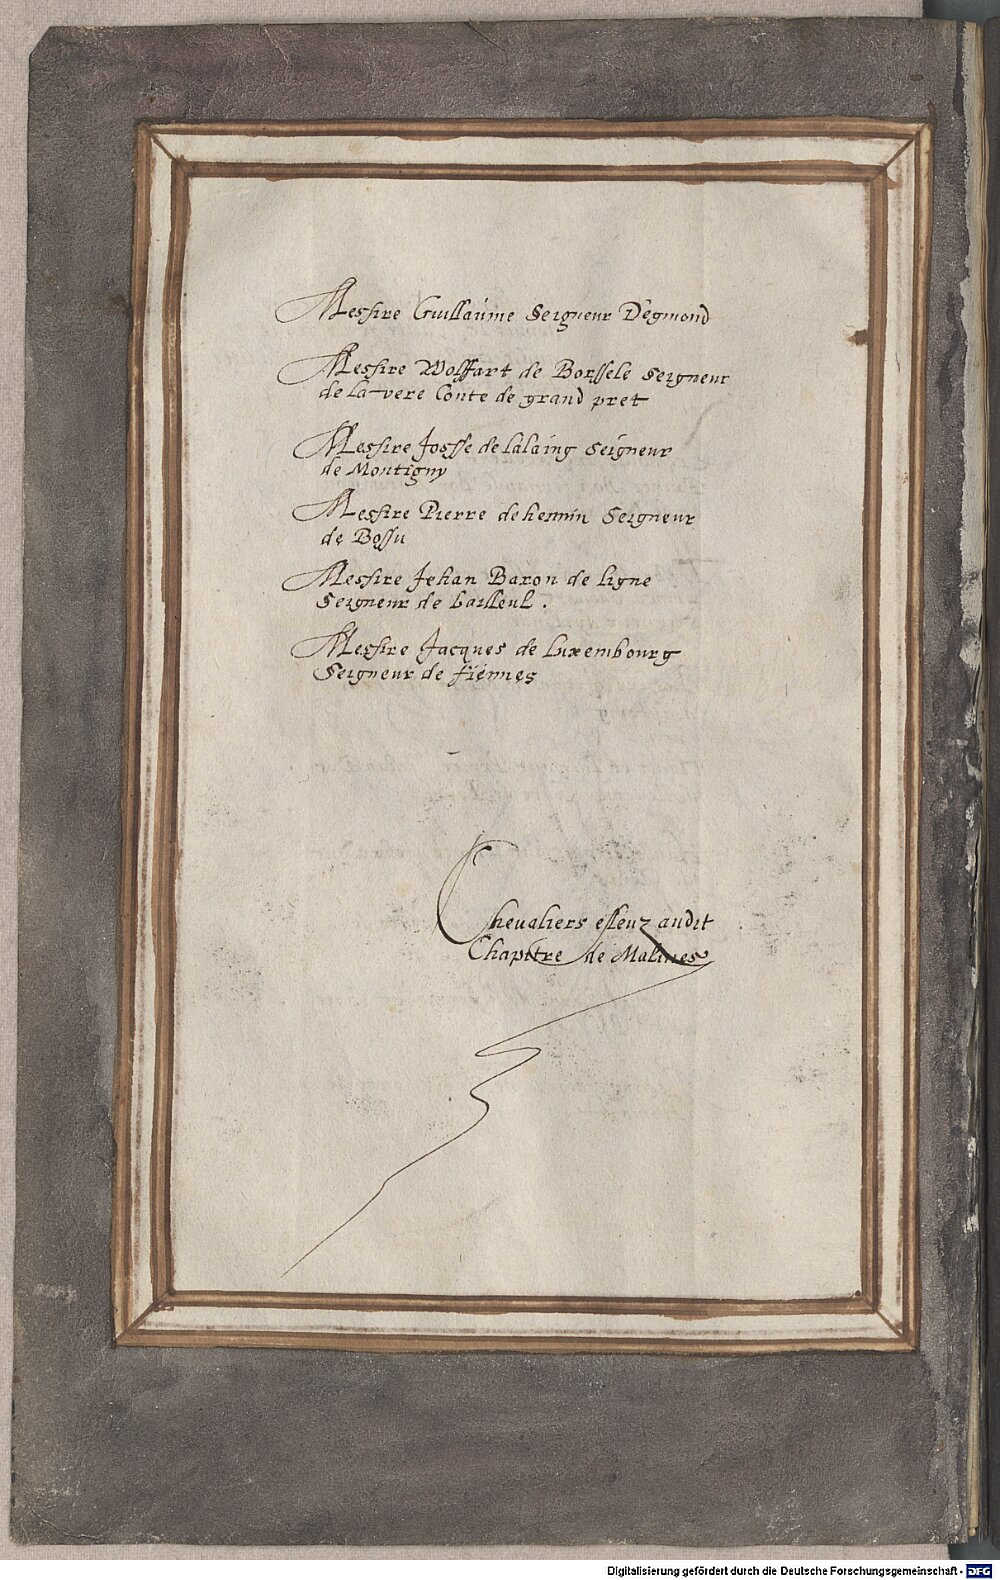 Messire Guillaume Seigneur D'egmond
Messire Wolffart de Borssele Seigneur
de la vere Conte de grand pret
Messire Josse de lalaing Seigneur
de Montigny
Messire Pierre de hennin Seigneur
de Bossu
Messire Jehan Baron de ligne
Seigneur de bailleul .
Messire Jacques de Luxembourg
Seigneur de fiennes
Chevaliers esleuz audit
Chapitre de Malines
Digitalisierung gefördert durch die Deutsche Forschungsgemeinschaft - DFG